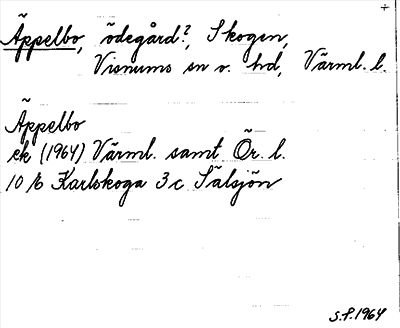 Äppelbo, ödegård?, Skogen,
Visnums sn o. hd, Värml. l.
Äppelbo
ek (1964) Värml. samt Ör. l.
10 E Karlskoga 3 c Sälsjön
S.F. 1964